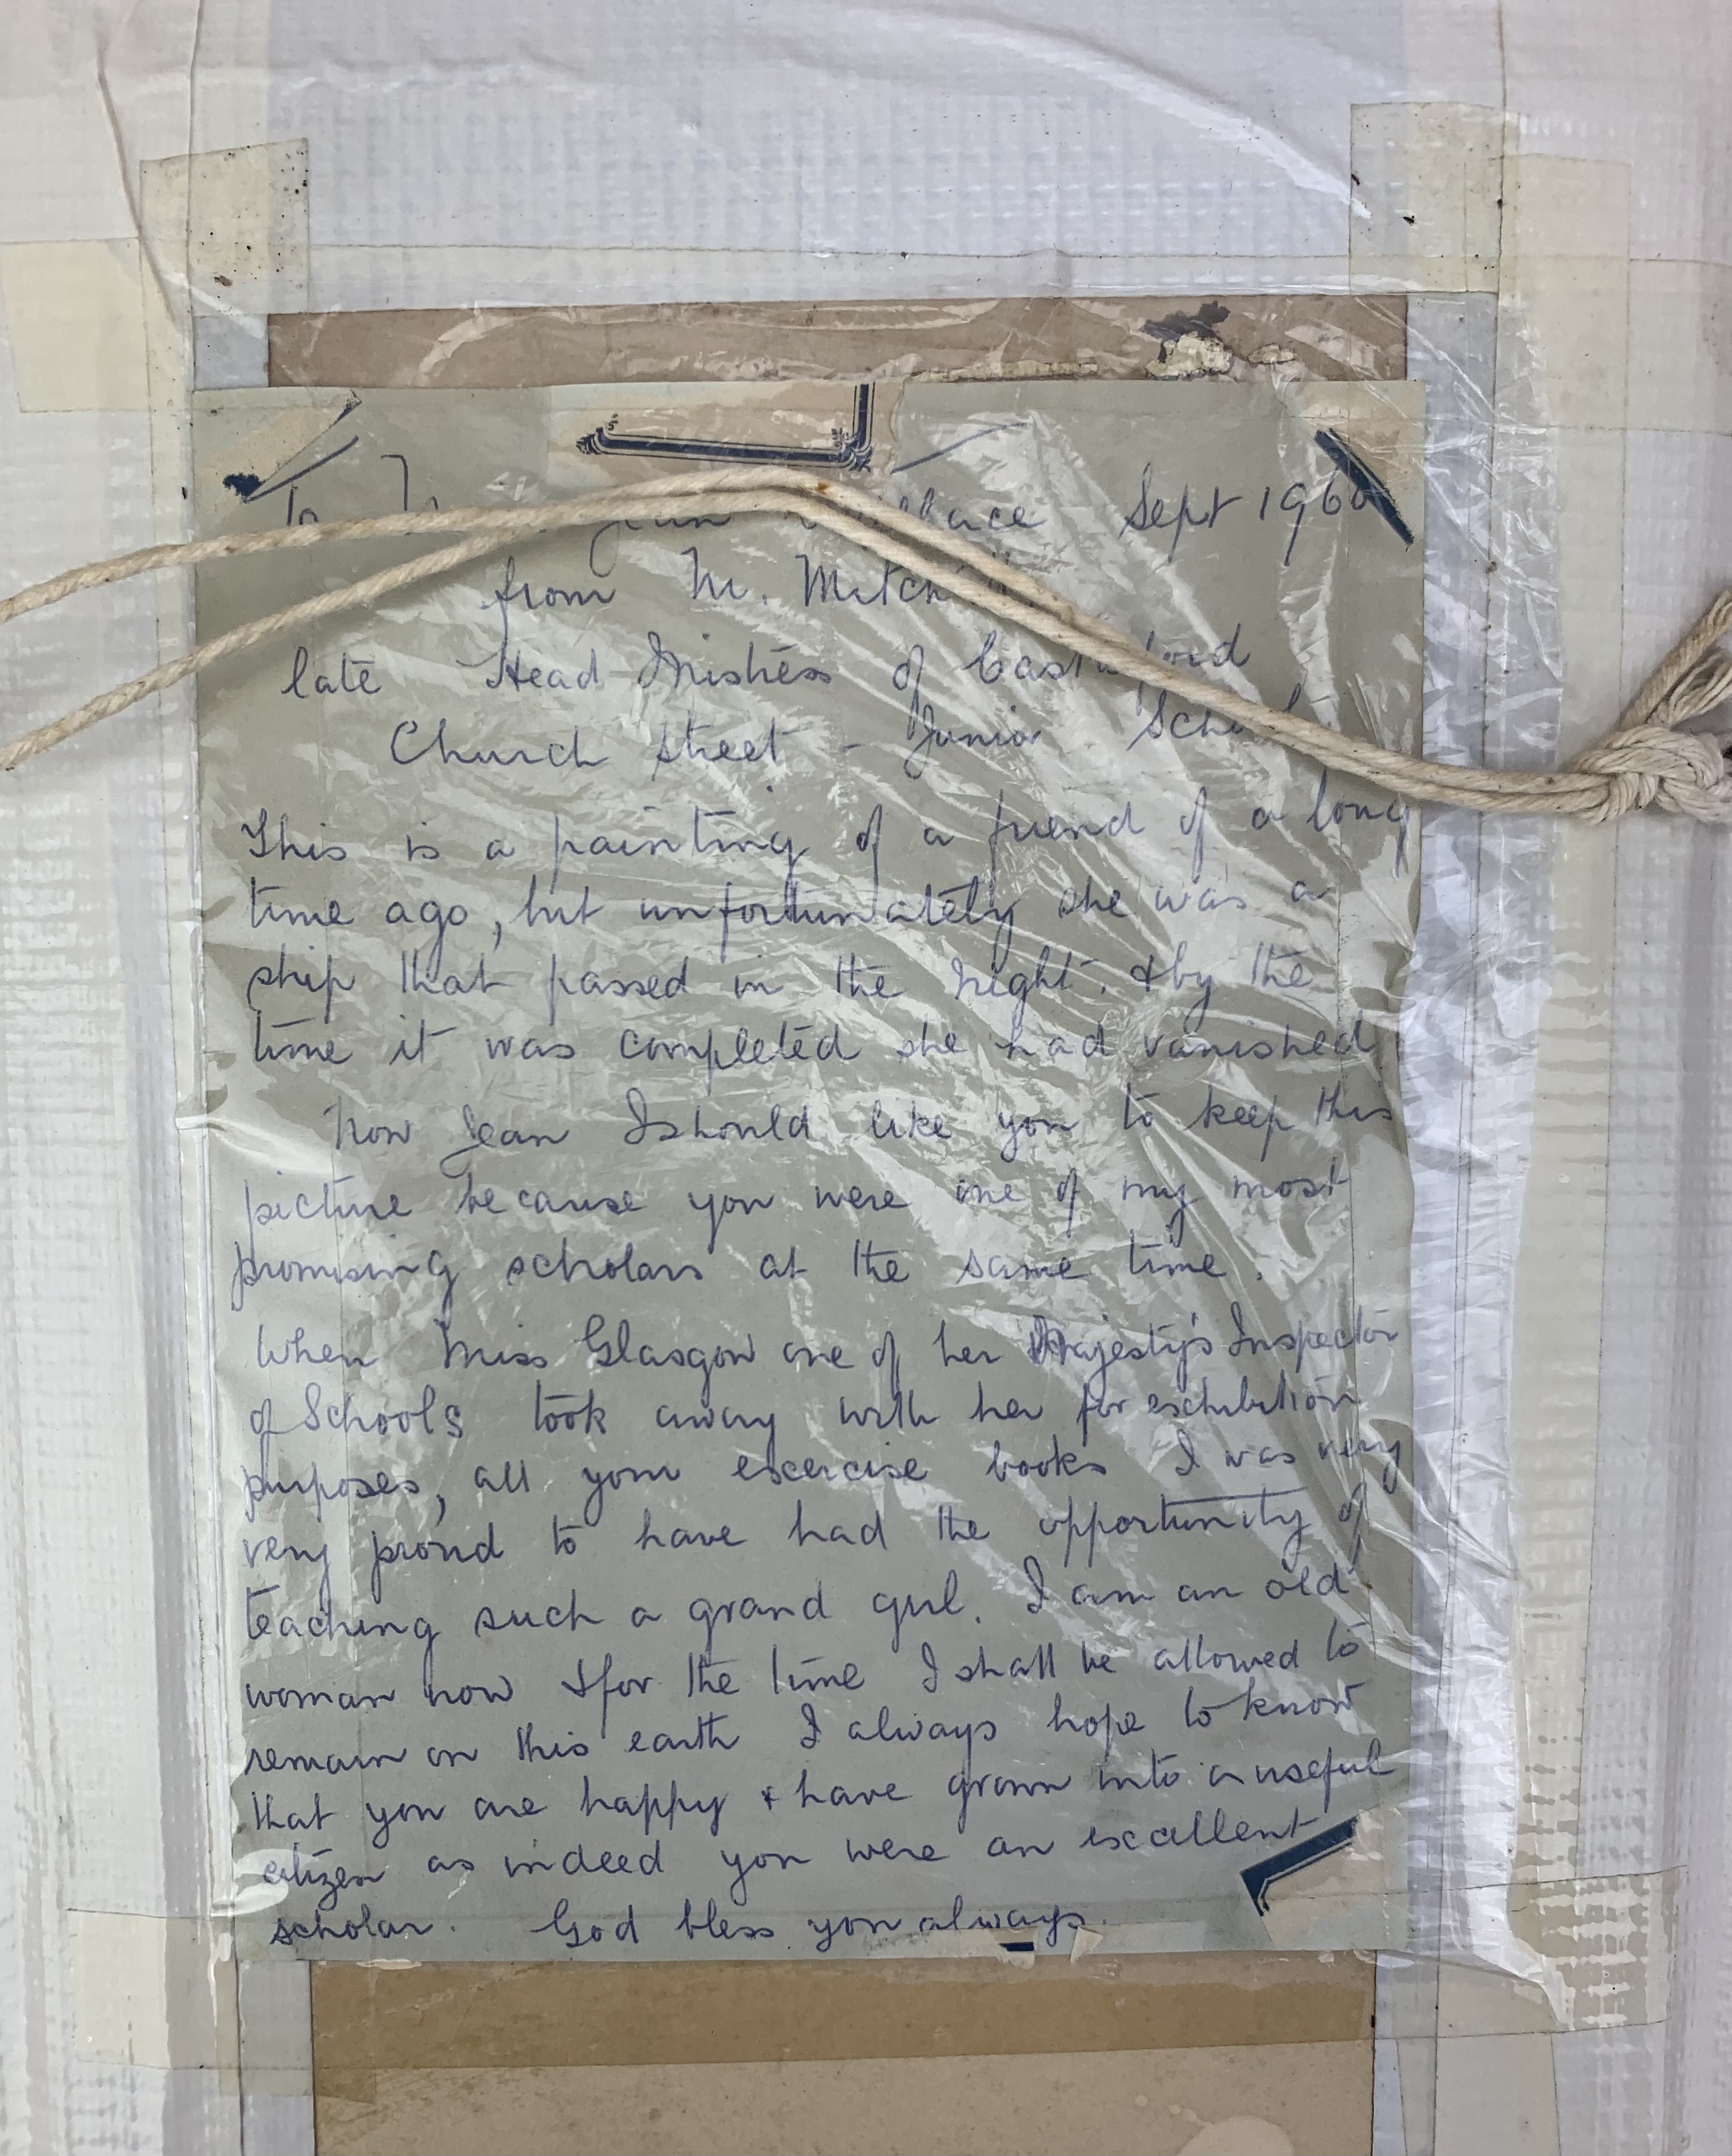 To Sept 1960
from M.
late Head Mistress of
Church Street - Junior School
This is a painting of a friend of a long
time ago, but unfortunately she was a
ship that passed in the night. & by the
time it was completed she had vanished
Now Jean I should like you to keep this
picture because you were one of my most
promising scholars at the same time.
When Miss Glasgow one of her Majesty's Inspector
of Schools took away with her for exhibition
purposes, all your excercise books I was very
very proud to have had the opportunity of
teaching such a grand girl. I am an old
woman now & for the time I shall be allowed to
remain on this earth I always hope to know
that you are happy & have grown into a useful
citizen as indeed you were an excellent
scholar. God bless you always.